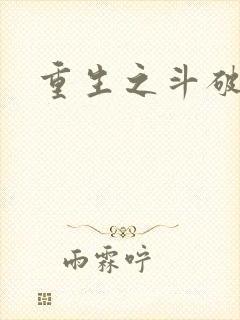 重生之斗破
雨霖咛